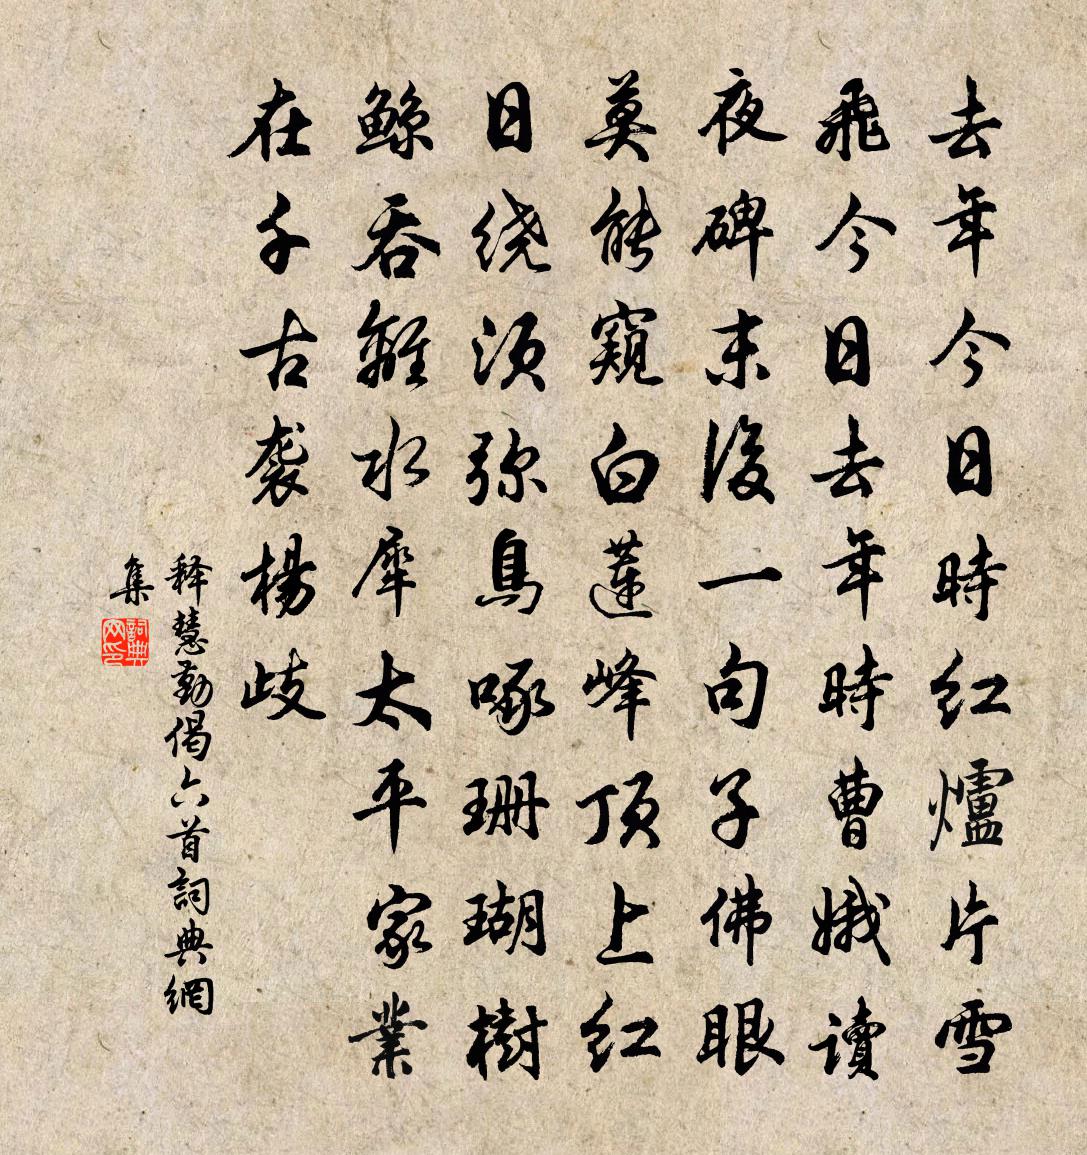 去年今日時紅爐片雪
飛今日去年時曹娥读
夜碑末後一句子佛眼
莫能窺白蓮峰顶上红
日绕须弥鳥啄珊瑚樹
鲸吞離水犀太平家業
在千古袭楊歧
释慧勤偈六首詞典網
集
詞典網印